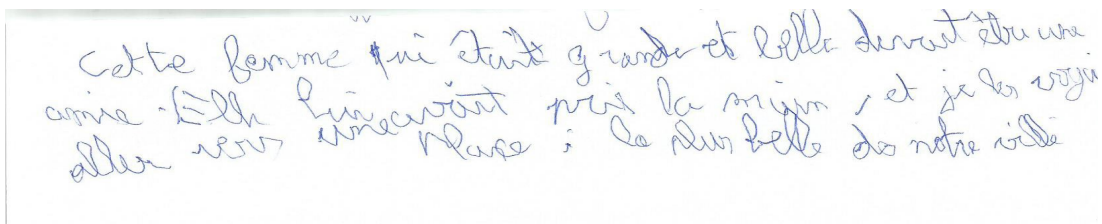 Cette femme qui était grande et belle devait être une
amie. Elle lui avait pris la main, et je les voyai
aller vers une place : la plus belle de notre ville